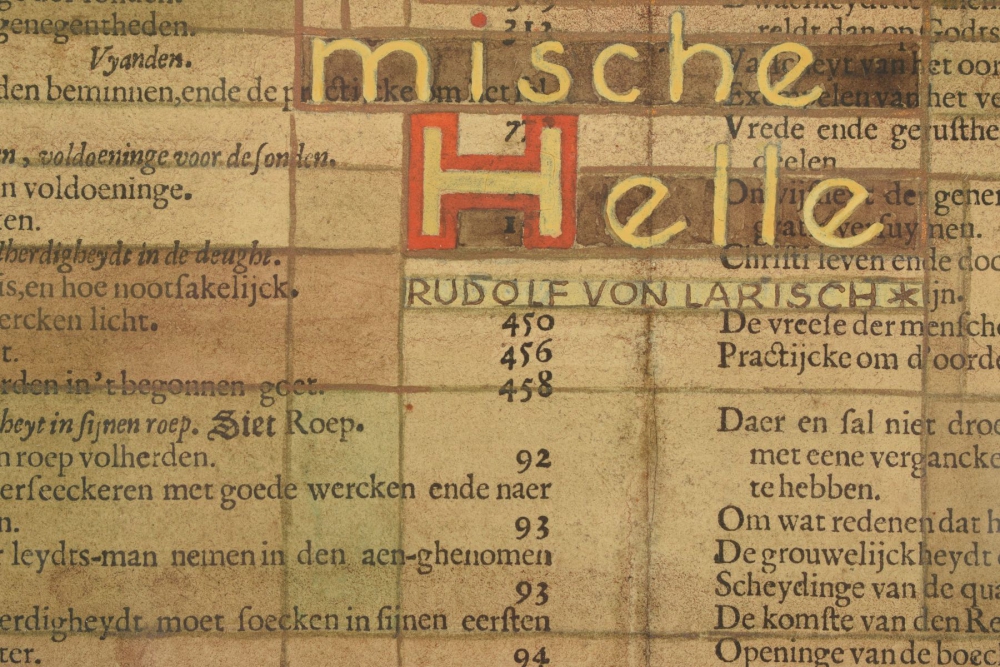 mische
Helle
RUDOLF VON LARISCH *
genegentheden.
312
Vyanden.
den beminnen, ende de
77
, voldoeninge voor de sonden.
n voldoeninge.
ten.
lherdigheydt in de deughe.
is, en hoe nootsakelijck.
ercken licht.
450
t.
456
rden in't begonnen goet.
458
heyt in sijnen roep. Siet Roep.
n roep volherden.
92
erseeckeren met goede wercken ende naer
n.
93
r leydts-man nemen in den aen-ghenomen
93
erdigheydt moet soecken in sijnen eersten
ter.
94
reldt dan op Godts
Vrede ende gerusthe
deelen
Christi leven ende doo
ijn.
De vreese der mensche
Practijcke om d'oorde
Daer en sal niet droe
met eene vergancke
te hebben.
Om wat redenen dat h
De grouwelijckheydt
Scheydinge van de qua
De komste van den Re
Openinge van de boec